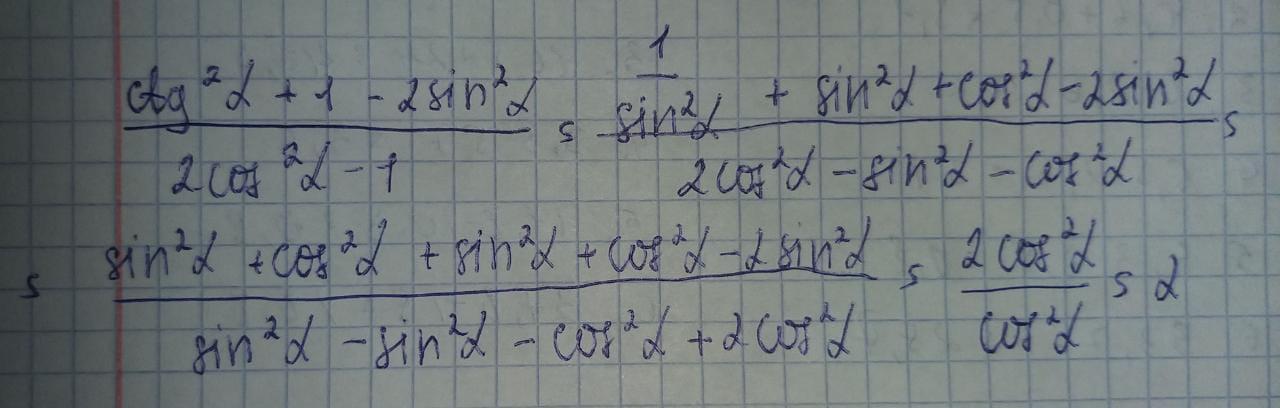 (ctg²α + 1 - 2sin²α)/(2cos²α - 1) = (1/sin²α + sin²α + cos²α - 2sin²α)/(2cos²α - sin²α - cos²α) =
= (sin²α + cos²α + sin²α + cos²α - 2sin²α)/(sin²α - sin²α - cos²α + 2cos²α) = (2cos²α)/(cos²α) = 2